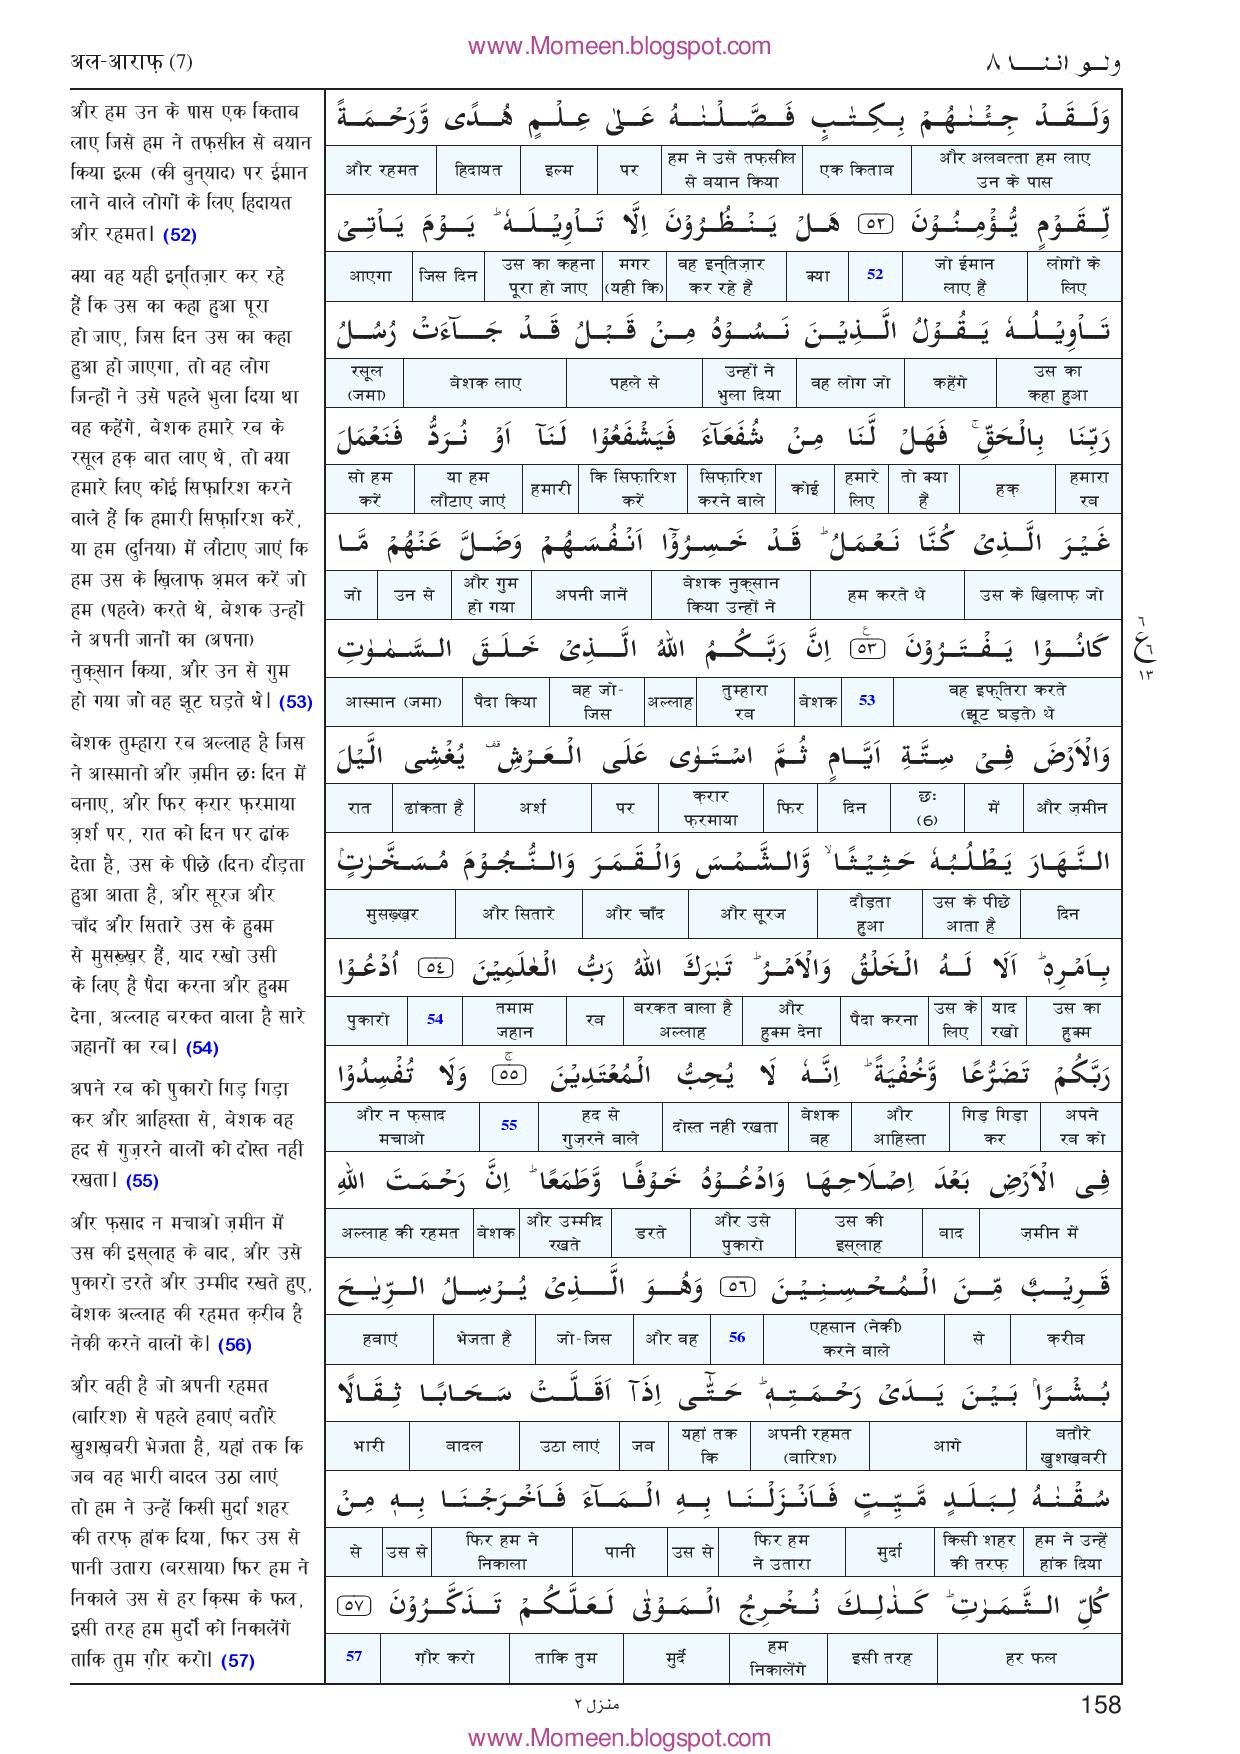 www.Momeen.blogspot.com
अल-आराफ़ (7)
ولو اننا ٨
और हम उन के पास एक किताब
लाए जिसे हम ने तफ़सील से बयान
किया इल्म (की बुन्याद) पर ईमान
लाने वाले लोगों के लिए हिदायत
और रहमत। (52)
क्या वह यही इन्तिज़ार कर रहे
हैं कि उस का कहा हुआ पूरा
हो जाए, जिस दिन उस का कहा
हुआ हो जाएगा, तो वह लोग
जिन्हों ने उसे पहले भुला दिया था
वह कहेंगे, बेशक हमारे रब के
रसूल हक़ बात लाए थे, तो क्या
हमारे लिए कोई सिफ़ारिश करने
वाले हैं कि हमारी सिफ़ारिश करें,
या हम (दुनिया) में लौटाए जाएं कि
हम उस के ख़िलाफ़ अ़मल करें जो
हम (पहले) करते थे, बेशक उन्हों
ने अपनी जानों का (अपना)
नुक़्सान किया, और उन से गुम
हो गया जो वह झूट घड़ते थे। (53)
बेशक तुम्हारा रब अल्लाह है जिस
ने आस्मानो और ज़मीन छः दिन में
बनाए, और फिर क़रार फ़रमाया
अ़र्श पर, रात को दिन पर ढांक
देता है, उस के पीछे (दिन) दौड़ता
हुआ आता है, और सूरज और
चाँद और सितारे उस के हुक्म
से मुसख़्ख़र हैं, याद रखो उसी
के लिए है पैदा करना और हुक्म
देना, अल्लाह बरकत वाला है सारे
जहानों का रब। (54)
अपने रब को पुकारो गिड़ गिड़ा
कर और आहिस्ता से, बेशक वह
हद से गुज़रने वालों को दोस्त नही
रखता। (55)
और फ़साद न मचाओ ज़मीन में
उस की इस्लाह के बाद, और उसे
पुकारो डरते और उम्मीद रखते हुए,
बेशक अल्लाह की रहमत क़रीब है
नेकी करने वालों के। (56)
और वही है जो अपनी रहमत
(बारिश) से पहले हवाएं बतौरे
खुशख़बरी भेजता है, यहां तक कि
जब वह भारी बादल उठा लाएं
तो हम ने उन्हें किसी मुर्दा शहर
की तरफ़ हांक दिया, फिर उस से
पानी उतारा (बरसाया) फिर हम ने
निकाले उस से हर क़िस्म के फल,
इसी तरह हम मुर्दों को निकालेंगे
ताकि तुम ग़ौर करो। (57)
وَلَقَدْ جِئْنٰهُمْ بِكِتٰبٍ فَصَّلْنٰهُ عَلٰى عِلْمٍ هُدًى وَّرَحْمَةً
और रहमत हिदायत इल्म पर हम ने उसे तफ़सील एक किताब और अलबत्ता हम लाए
से बयान किया उन के पास
لِّقَوْمٍ يُّؤْمِنُوْنَ ٥٢ هَلْ يَنْظُرُوْنَ اِلَّا تَاْوِيْلَهٗ ؕ يَوْمَ يَاْتِىْ
आएगा जिस दिन उस का कहना मगर वह इन्तिज़ार क्या 52 जो ईमान लोगों के
पूरा हो जाए (यही कि) कर रहे हैं लाए हैं लिए
تَاْوِيْلُهٗ يَقُوْلُ الَّذِيْنَ نَسُوْهُ مِنْ قَبْلُ قَدْ جَآءَتْ رُسُلُ
रसूल बेशक लाए पहले से उन्हों ने वह लोग जो कहेंगे उस का
(जमा) भुला दिया कहा हुआ
رَبِّنَا بِالْحَقِّ ۚ فَهَلْ لَّنَا مِنْ شُفَعَآءَ فَيَشْفَعُوْا لَنَاۤ اَوْ نُرَدُّ فَنَعْمَلَ
सो हम या हम हमारी कि सिफ़ारिश सिफ़ारिश कोई हमारे तो क्या हक़ हमारा
करें लौटाए जाएं करें करने वाले लिए हैं रब
غَيْرَ الَّذِىْ كُنَّا نَعْمَلُ ؕ قَدْ خَسِرُوْۤا اَنْفُسَهُمْ وَضَلَّ عَنْهُمْ مَّا
जो उन से और गुम अपनी जानें बेशक नुक़्सान हम करते थे उस के ख़िलाफ़ जो
हो गया किया उन्हों ने
كَانُوْا يَفْتَرُوْنَ ٥٣ اِنَّ رَبَّكُمُ اللّٰهُ الَّذِىْ خَلَقَ السَّمٰوٰتِ
٦ ع ٦ ١٣
आस्मान (जमा) पैदा किया वह जो- अल्लाह तुम्हारा बेशक 53 वह इफ़्तिरा करते
जिस रब (झूट घड़ते) थे
وَالْاَرْضَ فِىْ سِتَّةِ اَيَّامٍ ثُمَّ اسْتَوٰى عَلَى الْعَرْشِ ۫ يُغْشِى الَّيْلَ
रात ढांकता है अर्श पर क़रार फिर दिन छः में और ज़मीन
फ़रमाया (6)
النَّهَارَ يَطْلُبُهٗ حَثِيْثًا ۙ وَّالشَّمْسَ وَالْقَمَرَ وَالنُّجُوْمَ مُسَخَّرٰتٍۭ
मुसख़्ख़र और सितारे और चाँद और सूरज दौड़ता उस के पीछे दिन
हुआ आता है
بِاَمْرِهٖ ؕ اَلَا لَهُ الْخَلْقُ وَالْاَمْرُ ؕ تَبٰرَكَ اللّٰهُ رَبُّ الْعٰلَمِيْنَ ٥٤ اُدْعُوْا
पुकारो 54 तमाम रब बरकत वाला है और पैदा करना उस के याद उस का
जहान अल्लाह हुक्म देना लिए रखो हुक्म
رَبَّكُمْ تَضَرُّعًا وَّخُفْيَةً ؕ اِنَّهٗ لَا يُحِبُّ الْمُعْتَدِيْنَ ٥٥ وَلَا تُفْسِدُوْا
और न फ़साद 55 हद से दोस्त नही रखता बेशक और गिड़ गिड़ा अपने
मचाओ गुज़रने वाले वह आहिस्ता कर रब को
فِى الْاَرْضِ بَعْدَ اِصْلَاحِهَا وَادْعُوْهُ خَوْفًا وَّطَمَعًا ؕ اِنَّ رَحْمَتَ اللّٰهِ
अल्लाह की रहमत बेशक और उम्मीद डरते और उसे उस की बाद ज़मीन में
रखते पुकारो इस्लाह
قَرِيْبٌ مِّنَ الْمُحْسِنِيْنَ ٥٦ وَهُوَ الَّذِىْ يُرْسِلُ الرِّيٰحَ
हवाएं भेजता है जो-जिस और वह 56 एहसान (नेकी) से क़रीब
करने वाले
بُشْرًاۢ بَيْنَ يَدَىْ رَحْمَتِهٖ ؕ حَتّٰۤى اِذَاۤ اَقَلَّتْ سَحَابًا ثِقَالًا
भारी बादल उठा लाएं जब यहां तक अपनी रहमत आगे बतौरे
कि (बारिश) खुशख़बरी
سُقْنٰهُ لِبَلَدٍ مَّيِّتٍ فَاَنْزَلْنَا بِهِ الْمَآءَ فَاَخْرَجْنَا بِهٖ مِنْ
से उस से फिर हम ने पानी उस से फिर हम मुर्दा किसी शहर हम ने उन्हें
निकाला ने उतारा की तरफ़ हांक दिया
كُلِّ الثَّمَرٰتِ ؕ كَذٰلِكَ نُخْرِجُ الْمَوْتٰى لَعَلَّكُمْ تَذَكَّرُوْنَ ٥٧
57 ग़ौर करो ताकि तुम मुर्दे हम इसी तरह हर फल
निकालेंगे
منزل ٢
158
www.Momeen.blogspot.com